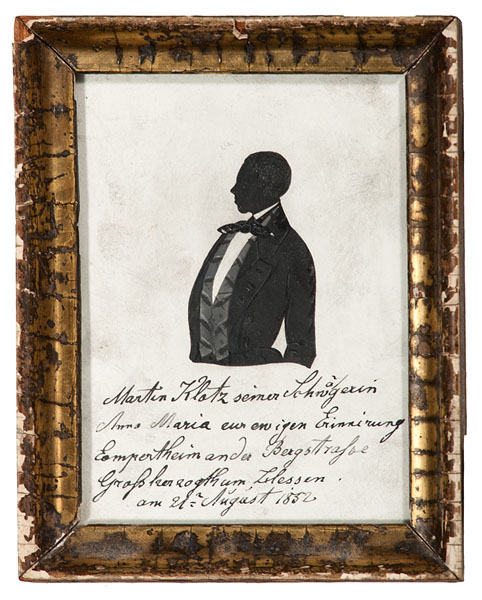 Martin Klotz seiner Schwägerin
Anna Maria eur ewigen Erinnirung
Eompertheim an der Bergstrasse
Grosherzogthum Hessen.
am 21r August 1852